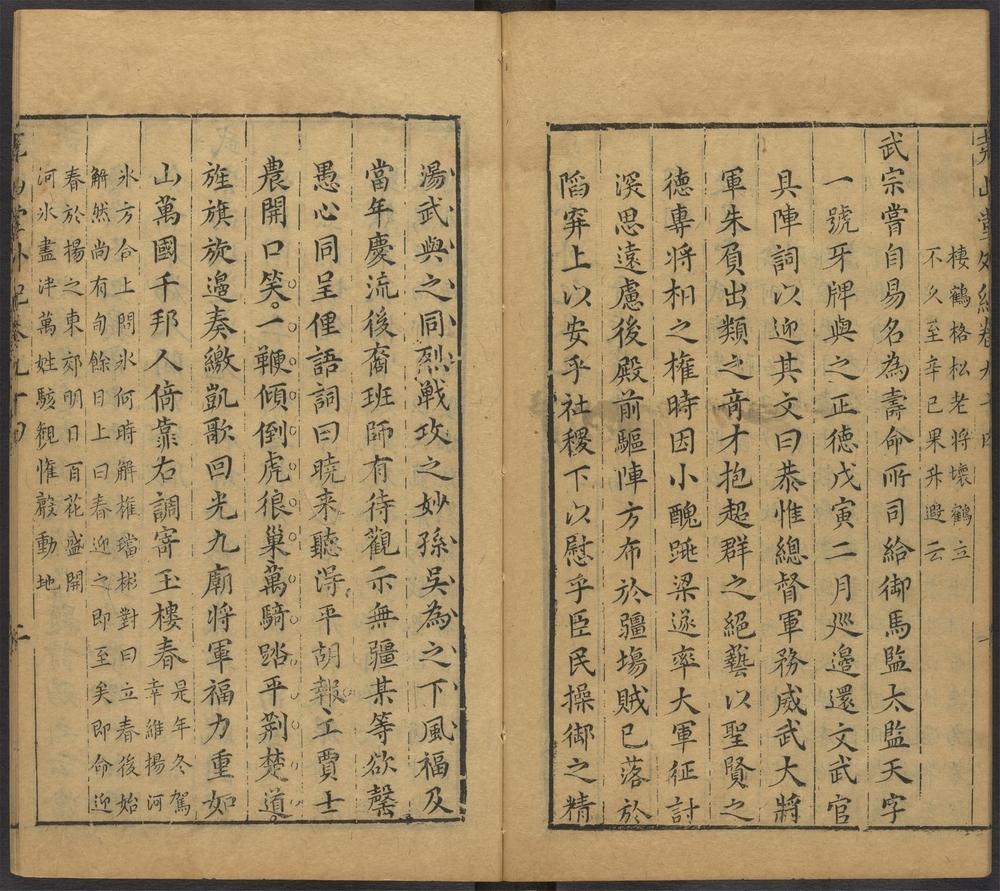 棲鶴格松老將壞鶴立
不久至辛已果升遐云
武宗嘗自易名為壽命所司給御馬監太監天字
一號牙牌與之正德戊寅二月廵邊還文武官
具陣詞以迎其文曰恭惟總督軍務威武大將
軍朱負出類之竒才抱超群之絕藝以聖賢之
德專將相之權時因小醜跳梁遂率大軍征討
深思遠慮後殿前驅陣方布於疆場賊已落於
陷穽上以安乎社稷下以慰乎臣民操御之精
湯武與之同烈戰攻之妙孫吳為之下風福及
當年慶流後裔班師有待觀示無疆某等欲罄
愚心同呈俚語詞曰曉来聽淂平胡報工賈士
農開口笑。一鞭傾倒虎狼巢萬騎踏平荆楚道。
旌旗旋邉奏繳凱歌回光九廟將軍福力重如
山萬國千邦人倚靠右調寄玉樓春是年冬駕
幸維揚河
氷方合上問氷何時解權璫彬對曰立春後始
解然尚有旬餘日上曰春迎之即至矣即命迎
春於揚之東郊明日百花盛開
河氷盡泮萬姓駭觀惟敲動地